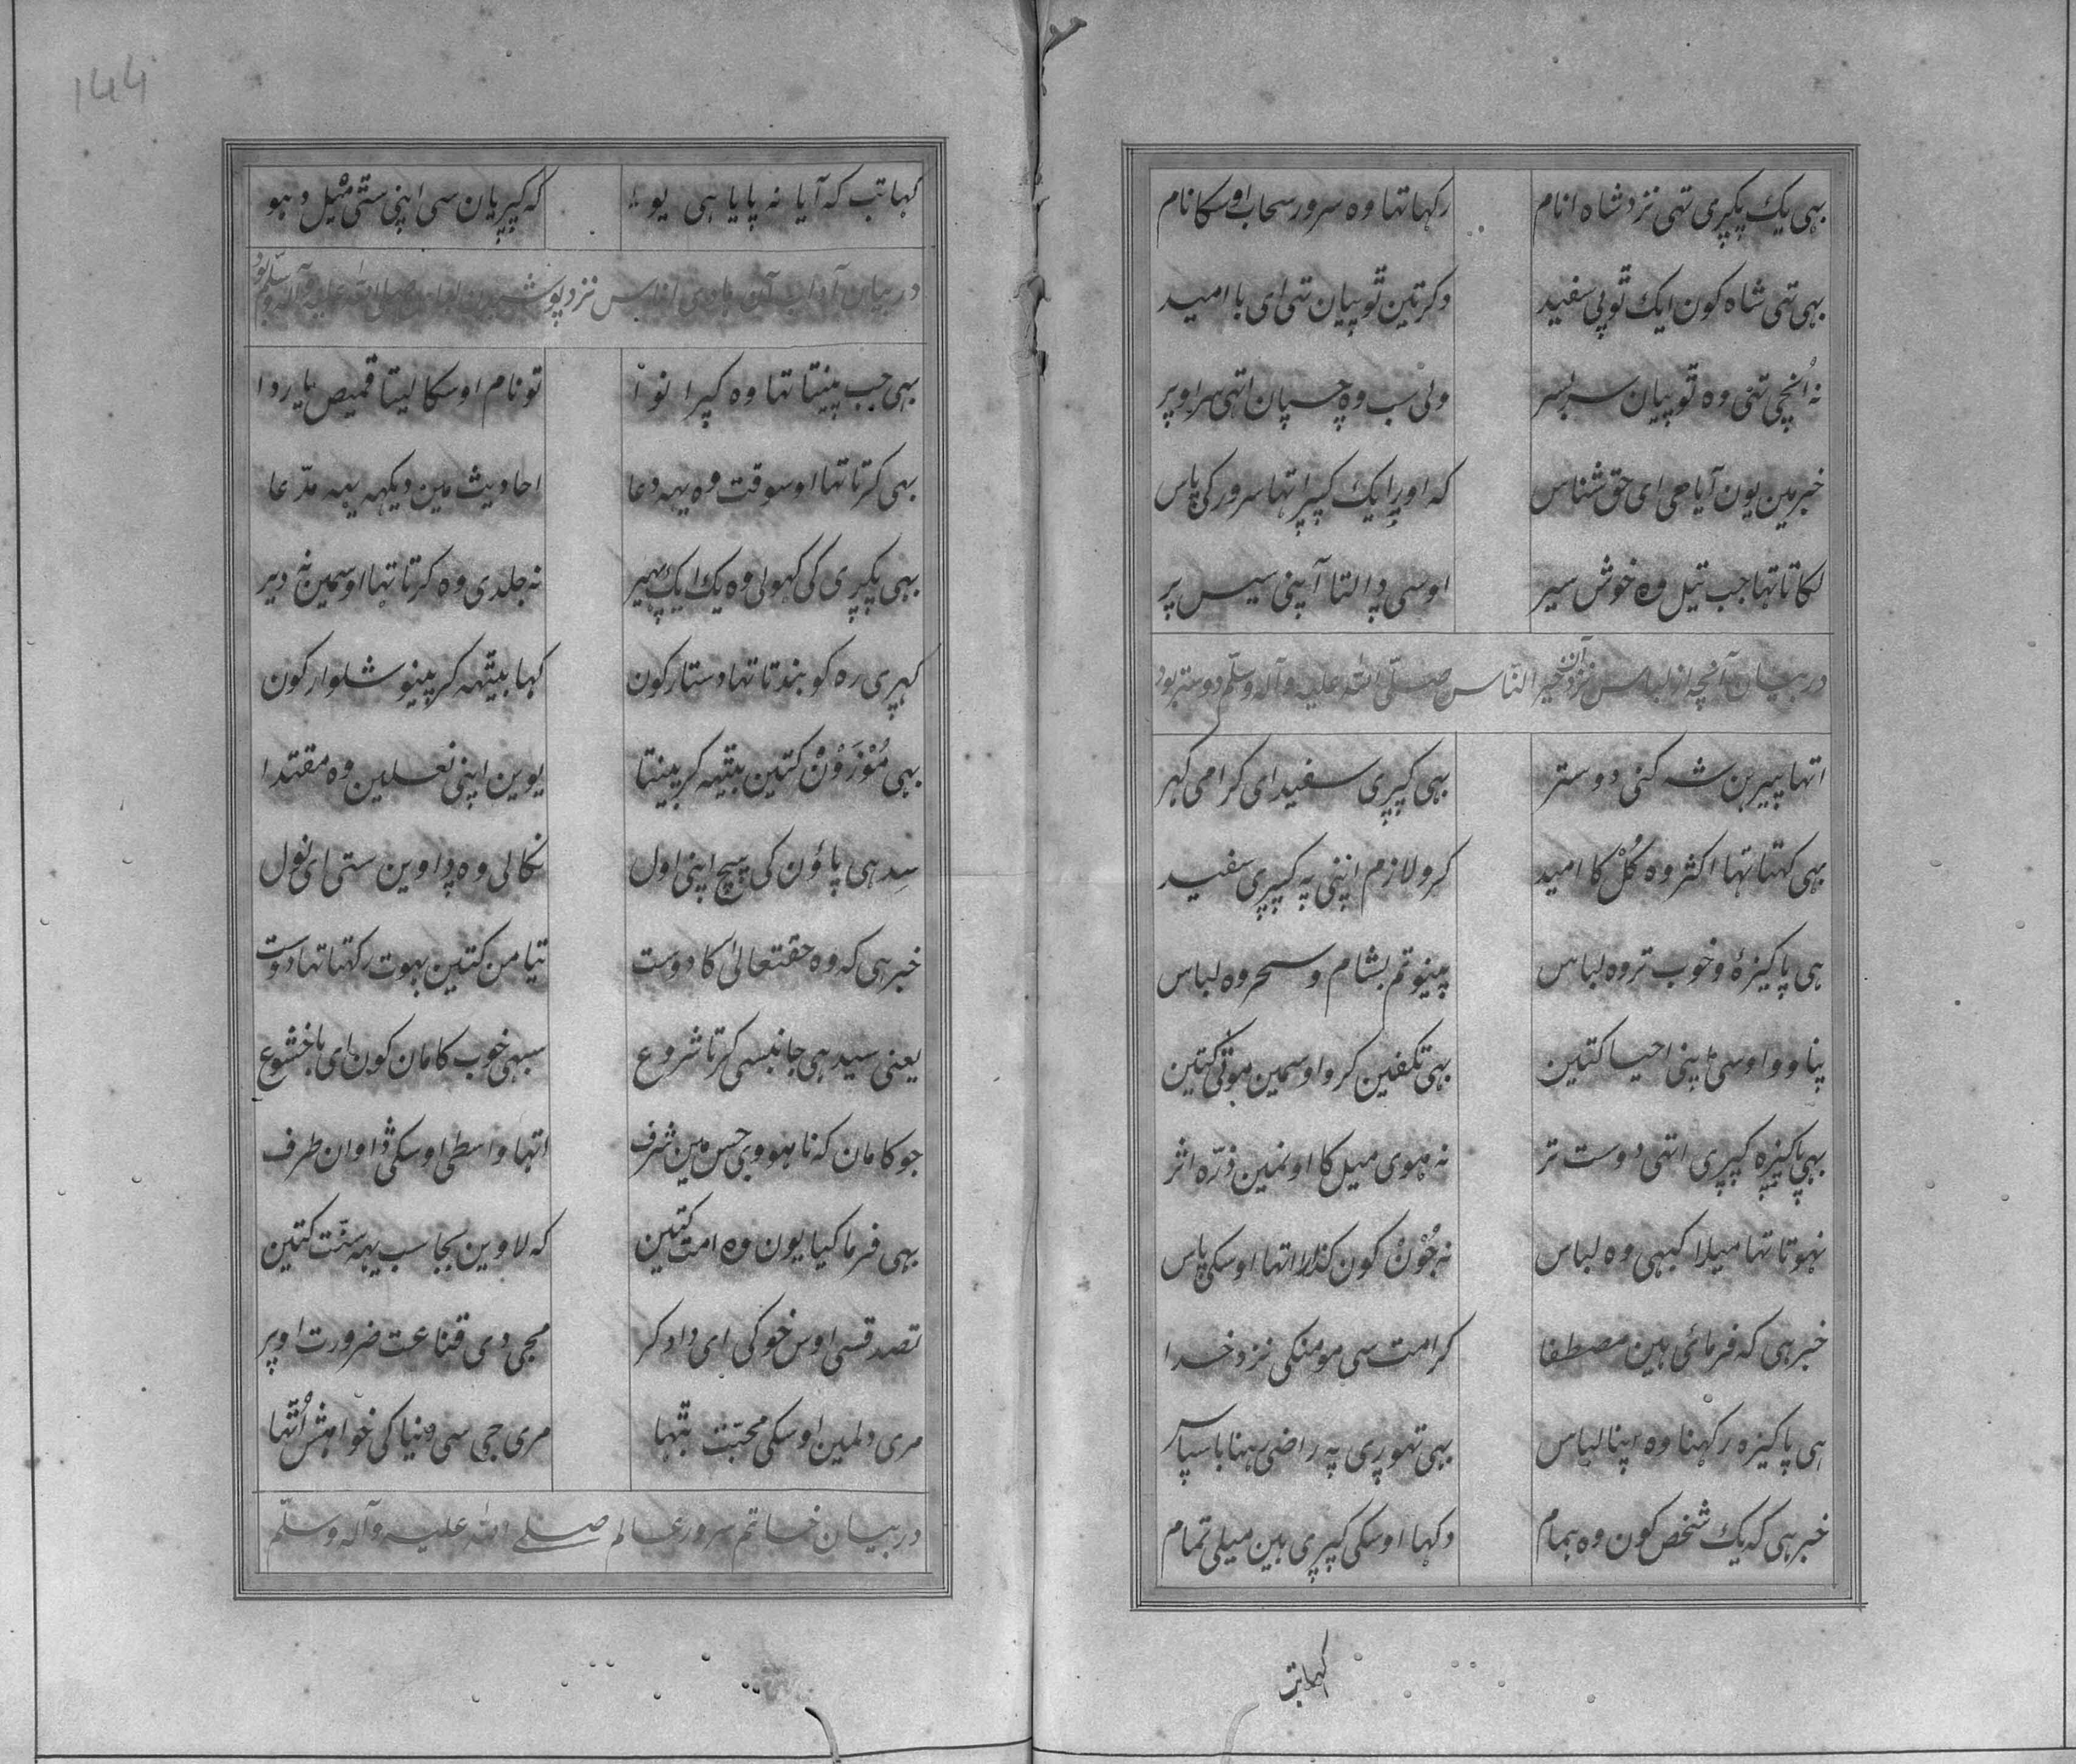 بہی یک پکڑی تہی نزد شاہ انام رکہا تہا وہ سرور سحاب اوسکا نام
بہی تہی شاہ کون ایک ٹوپی سفید دکر تین ٹوپیان تہی ای با امید
نہ اُنچی تہی وہ ٹوپیان سربسر ولی سب وہ چسپان اتہی سر اوپر
خبر مین یون آیا حی ای حق شناس کہ اور ایک کپڑا تہا سرور کی پاس
لکاتا تہا جب تیل وہ خوش سیر اوسی ڈالتا آپنی سیس پر
در بیان آنچہ از لباس نزد آن خیر النّاس صلّی اللہ علیہ وآلہ وسلّم دوستر بود
اتہا پیرہن شہ کنی دوستر بہی کپڑی سفید ای کرامی کہر
بہی کہتا تہا اکثر وہ کُل کا امید کرو لازم اپنی پہ کپڑی سفید
ہی پاکیزہ وخوب تر وہ لباس پہنیو تم بشام وسحر وہ لباس
پناوو اوسی اپنی احیا کتین بہی تکفین کرو اوسمین موتی کتین
بہی پاکیزہ کپڑی اتہی دوست تر نہ ہوی میل کا اونمین ذرّہ اثر
نہوتا تہا میلا کبہی وہ لباس نہ جُوْنْ کون کذارا تہا اوسکی پاس
خبر ہی کہ فرمائی ہین مصطفا کرامت سی مومنکی نزد خدا
ہی پاکیزہ رکہنا وہ اپنا لباس بہی تہوڑی پہ راضی رہنا با سپاس
خبر ہی کہ یک شخص کون وہ ہمام دکہا اوسکی کپڑی ہین میلی تمام
کہا تب
کہا تب کہ آیا نہ پایا ہی یو کہ کپڑیان سی اپنی ستی میل دہو
در بیان آداب آن نزد پوشیدن لباس صلی اللہ علیہ وآلہ وسلّم بود
بہی جب پینتا تہا وہ کپڑا نوا تو نام اوسکا لیتا قمیص یا ردا
بہی کرتا تہا اوسوقت وہ یہہ دعا احادیث مین دیکہہ یہہ مدّعا
بہی پکڑی کی کہولی وہ یک ایک پہیر نہ جلدی وہ کرتا تہا اوسمین نہ دیر
کہڑی رہ کو بندتا تہا دستار کون کہا بیٹہہ کر پہنو شلوار کون
بہی مُوْزَوْنْ کتین بیٹہہ کر پینتا یوین اپنی نعلین وہ مقتدا
سِدہی پاؤن کی بیچ اپنی اول نکالی وہ ڈاوین ستی ای نول
خبر ہی کہ وہ حقتعالیٰ کا دوست تیامن کتین بہوت رکہتا تہا دوست
یعنی سیدہی جانبسی کرتا شروع سبہی خوب کامان کون ای باخشوع
جو کامان کہ نا ہووی جس مین شرف اتہا واسطی اوسکی ڈاوان طرف
بہی فرما کیا یون وہ امت کتین کہ لاوین بجا سب یہہ سنّت کتین
تصدقسی اوس خو کی ای دادکر مجی دی قناعت ضرورت اوپر
مری دلمین اوسکی محبّت بٹہا مری جی سی دنیا کی خواہش اُٹہا
در بیان خاتم سرور عالم صلے اللہ علیہ وآلہ وسلّم